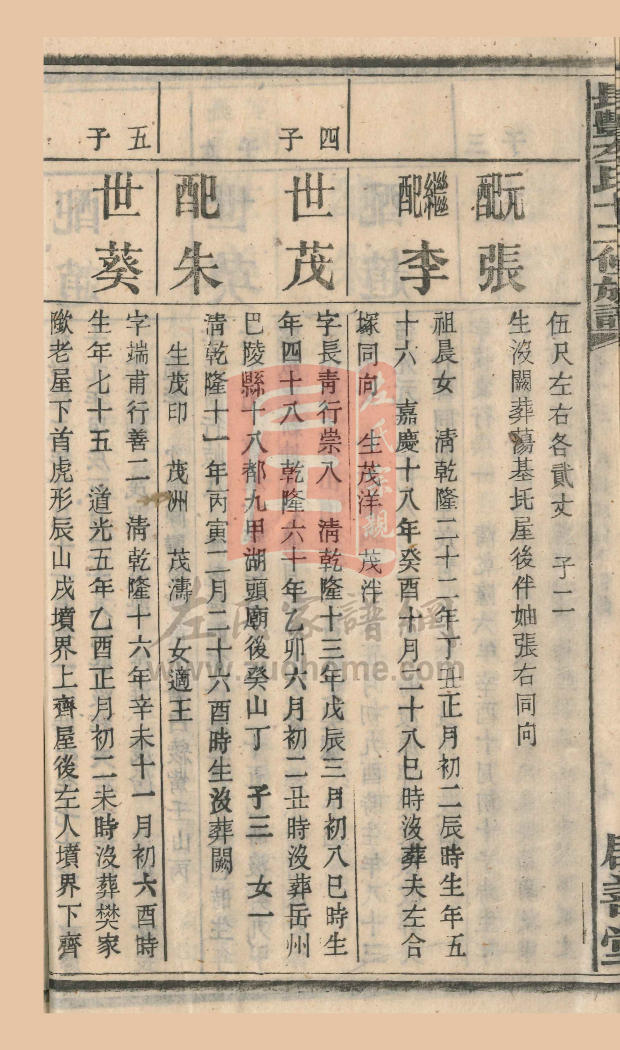 伍尺左右各貳丈 子二
元配張
生沒闕葬蕩基坵屋後伴妯張右同向
繼配李
祖晨女 清乾隆二十二年丁丑正月初二辰時生年五
十六 嘉慶十八年癸酉十月二十八巳時沒葬夫左合
塚同向 生茂洋 茂泮
四子
世茂
字長青行崇八 清乾隆十三年戊辰三月初八巳時生
年四十八 乾隆六十年乙卯六月初二丑時沒葬岳州
巴陵縣十八都九甲湖頭廟後癸山丁 子三 女一
配朱
清乾隆十一年丙寅二月二十六酉時生沒葬闕
生茂印 茂洲 茂濤 女適王
五子
世葵
字端甫行善二 清乾隆十六年辛未十一月初六酉時
生年七十五 道光五年乙酉正月初二未時沒葬樊家
隞老屋下首虎形辰山戌墳界上齊屋後左人墳界下齊
左氏宗親
左氏家譜網
www.zuohome.com